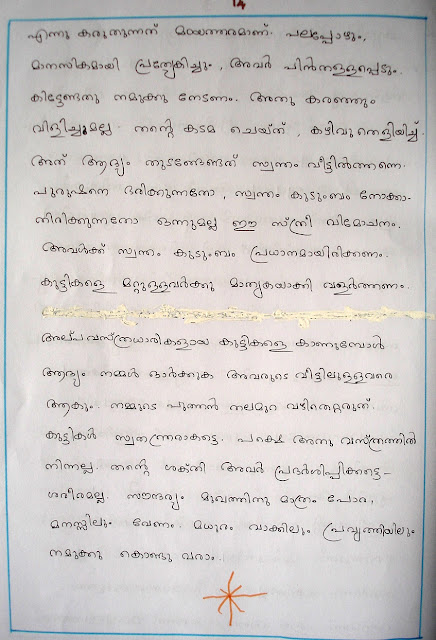 14
എന്നു കരുതുന്നത് മഠയത്തരമാണ്. പലപ്പോഴും,
മാനസികമായി പ്രത്യേകിച്ചും, അവർ പിൻതള്ളപ്പെടും.
കിട്ടേണ്ടതു നമുക്കു നേടണം. അതു കരഞ്ഞും
വിളിച്ചുമല്ല. തന്റെ കടമ ചെയ്ത്, കഴിവു തെളിയിച്ച്.
അത് ആദ്യം തുടങ്ങേണ്ടത് സ്വന്തം വീട്ടിൽത്തന്നെ.
പുരുഷനെ ഭരിക്കുന്നതോ, സ്വന്തം കുടുംബം നോക്കാ-
തിരിക്കുന്നതോ ഒന്നുമല്ല ഈ സ്ത്രീ വിമോചനം.
അവൾക്ക് സ്വന്തം കുടുംബം പ്രധാനമായിരിക്കണം.
കുട്ടികളെ മറ്റുള്ളവർക്കു മാതൃകയാക്കി വളർത്തണം.
അല്പവസ്ത്രധാരികളായ കുട്ടികളെ കാണുമ്പോൾ
ആദ്യം നമ്മൾ ഓർക്കുക അവരുടെ വീട്ടിലുള്ളവരെ
ആകും. നമ്മുടെ പുത്തൻ തലമുറ വഴിതെറ്റരുത്.
കുട്ടികൾ സ്വതന്ത്രരാകട്ടെ. പക്ഷെ അതു വസ്ത്രത്തിൽ
നിന്നല്ല. തന്റെ ശക്തി അവർ പ്രദർശിപ്പിക്കട്ടെ -
ശരീരമല്ല. സൗന്ദര്യം മുഖത്തിനു മാത്രം പോരാ,
മനസ്സിലും വേണം. മധുരം വാക്കിലും പ്രവൃത്തിയിലും
നമുക്കു കൊണ്ടു വരാം.